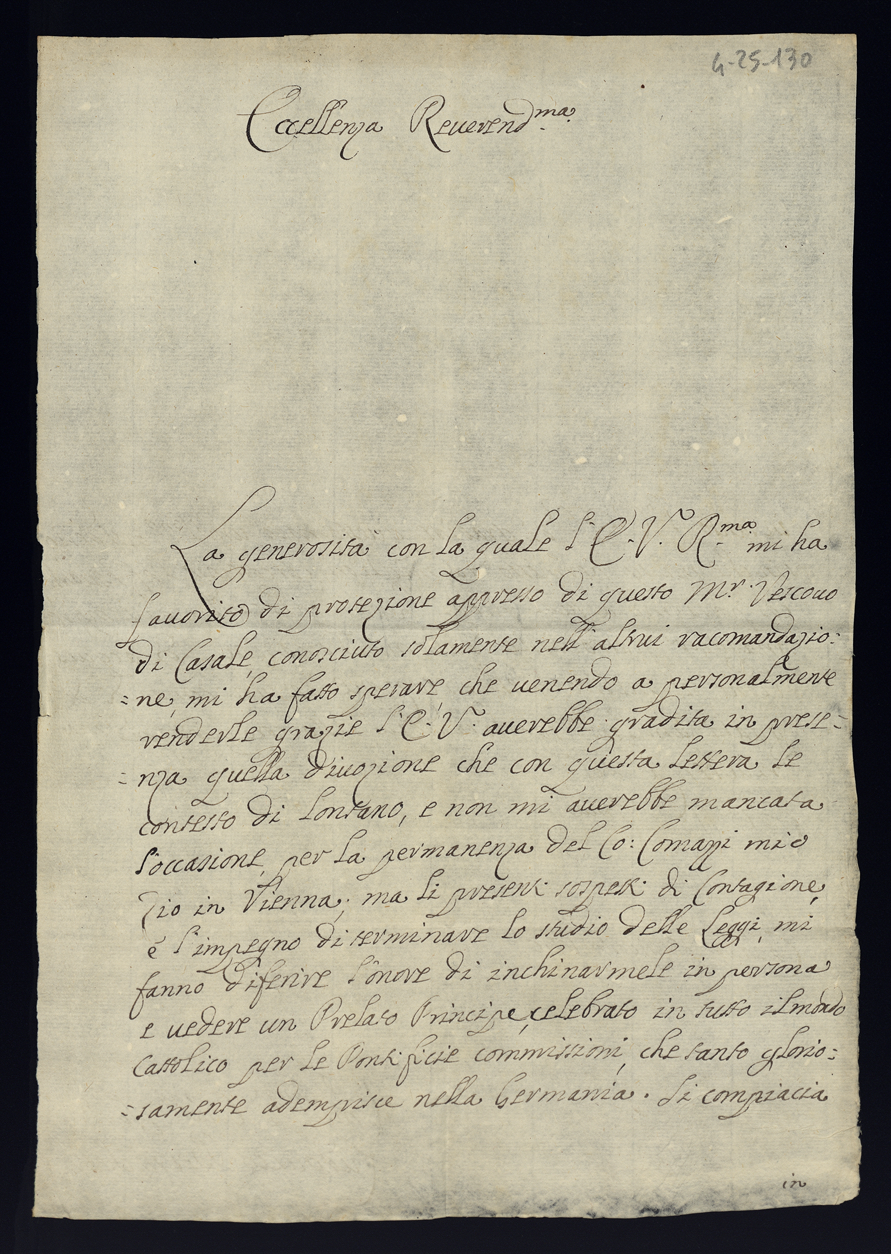 4-25-130
Eccellenza Reverend.ma
La generosità con la quale l'E. V. R.ma mi ha
favorito di protezione appresso di questo Mr. Vescovo
di Casale, conosciuto solamente nell'altrui racomandazio=
=ne, mi ha fatto sperare che venendo a personalmente
renderle grazie l'E. V. averebbe gradita in prese=
=nza quella divozione che con questa lettera le
contesto di lontano, e non mi averebbe mancata
l'occasione, per la permanenza del Co: Comazzi mio
Zio in Vienna; ma li presenti sospetti di Contagione,
é l'impegno di terminare lo studio delle Leggi, mi
fanno diferire l'onore di inchinarmele in persona
e vedere un Prelato Principe, celebrato in tutto il mondo
Cattolico per le Pontificie commissioni, che tanto glorio=
=samente adempisce nella Germania. Si compiacia
in